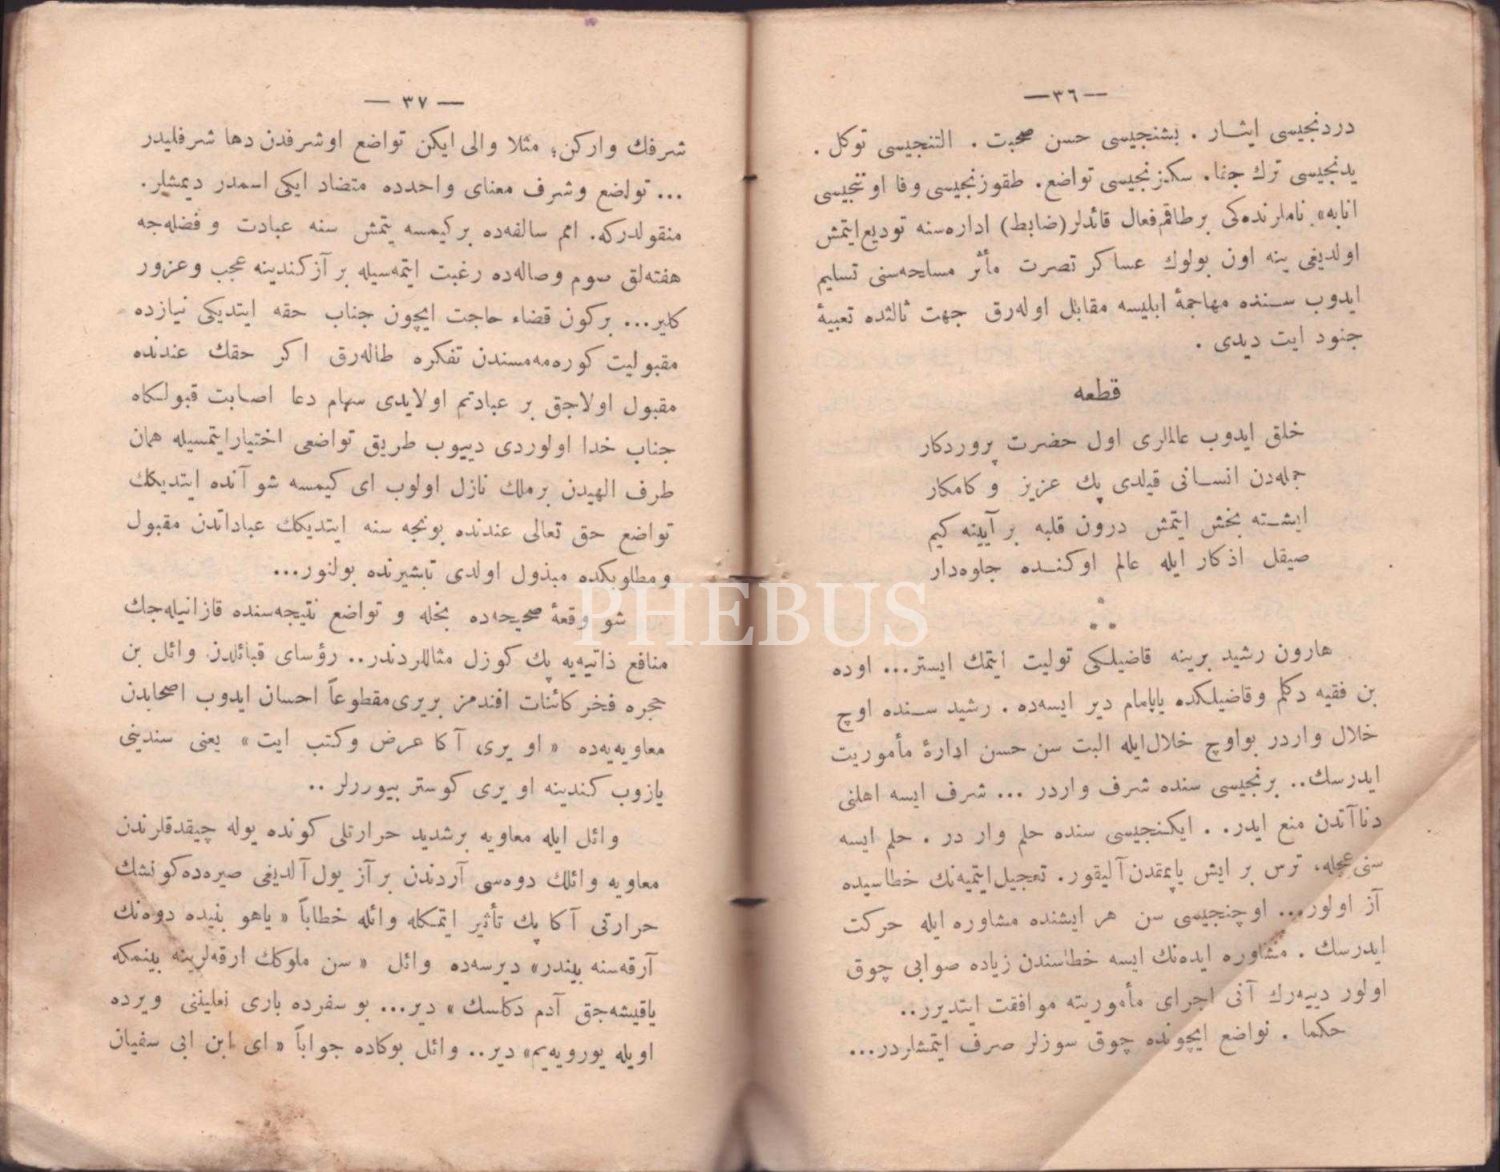 — ٣٦ —
دردنجیسی ایثار . بشنجیسی حسن صحبت . التنجیسی توكل .
یدنجیسی ترك جفا. سكزنجیسی تواضع. طقوزنجیسی وفا اوننجیسی
انابه» ناملرنده‌كی برطاقم‌فعال قائدلر(ضابط) اداره‌سنه تودیع‌ایتمش
اولدیغی ینه اون بولوك عساكر نصرت مأثر مسلحه‌سنی تسلیم
ایدوب سنده مهاجمهٔ ابلیسه مقابل اوله‌رق جهت ثالثده تعبیهٔ
جنود ایت دیدی .
قطعه
خلق ایدوب عالملری اول حضرت پروردكار
جمله‌دن انسانی قیلدی پك عزیز و كامكار
ایشته بخش ایتمش درون قلبه بر آیینه كیم
صیقل اذكار ایله عالم اوكنده جلوه‌دار
هارون رشید برینه قاضیلكی تولیت ایتمك ایستر... اوده
بن فقیه دكلم وقاضیلكده یاپامام دیر ایسه‌ده . رشید سنده اوچ
خلال واردر بواوچ خلال‌ایله البت سن حسن ادارهٔ مأموریت
ایدرسك.. برنجیسی سنده شرف واردر ... شرف ایسه اهلنی
دناآتدن منع ایدر. . ایكنجیسی سنده حلم وار در . حلم ایسه
سنی‌عجله، ترس بر ایش یاپمقدن آلیقور. تعجیل‌ایتمیه‌نك خطاسیده
آز اولور... اوچنجیسی سن هر ایشنده مشاوره ایله حركت
ایدرسك . مشاوره ایده‌نك ایسه خطاسندن زیاده صوابی چوق
اولور دییه‌رك آنی اجرای مأموریته موافقت ایتدیرر..
حكما . تواضع ایچونده چوق سوزلر صرف ایتمشلردر...
— ٣٧ —
شرفك واركن؛ مثلا والی ایكن تواضع اوشرفدن دها شرفلیدر
... تواضع وشرف معنای واحدده متضاد ایكی اسمدر دیمشلر.
منقولدركه. امم سالفه‌ده بركیمسه یتمش سنه عبادت و فضله‌جه
هفته‌لق صوم وصاله‌ده رغبت ایتمه‌سیله بر آز كندینه عجب وغرور
كلیر... بركون قضاء حاجت ایچون جناب حقه ایتدیكی نیازده
مقبولیت كوره‌مه‌مسندن تفكره طاله‌رق اكر حقك عندنده
مقبول اولاجق بر عبادتم اولایدی سهام دعا اصابت قبولكاه
جناب خدا اولوردی دییوب طریق تواضعی اختیارایتمسیله همان
طرف الهیدن برملك نازل اولوب ای كیمسه شو آنده ایتدیكك
تواضع حق تعالی عندنده بونجه سنه ایتدیكك عباداتدن مقبول
ومطلوبكده مبذول اولدی تبشیرنده بولنور...
شو وقعهٔ صحیحه‌ده بخله و تواضع نتیجه‌سنده قازانیله‌جك
منافع ذاتیه‌یه پك كوزل مثاللردندر.. رؤسای قبائلدن وائل بن
حجره فخر كائنات افندمز بریری‌مقطوعاً احسان ایدوب اصحابدن
معاویه‌یه‌ده « او یری آكا عرض وكتب ایت» یعنی سندینی
یازوب كندینه او یری كوستر بیوررلر ..
وائل ایله معاویه برشدید حرارتلی كونده یوله چیقدقلرندن
معاویه وائلك دوه‌سی آردندن بر آز یول‌آلدیغی صیره‌ده‌كونشك
حرارتی آكا پك تأثیر ایتمكله وائله خطاباً « یاهو بنیده دوه‌نك
آرقه‌سنه بیندر» دیرسه‌ده وائل « سن ملوكك ارقه‌لرینه بینمكه
یاقیشه‌جق آدم دكلسك» دیر... بو سفرده باری نعلینی ویرده
اویله یورویه‌یم» دیر.. وائل بوكاده جواباً « ای ابن ابی سفیان
PHEBUS